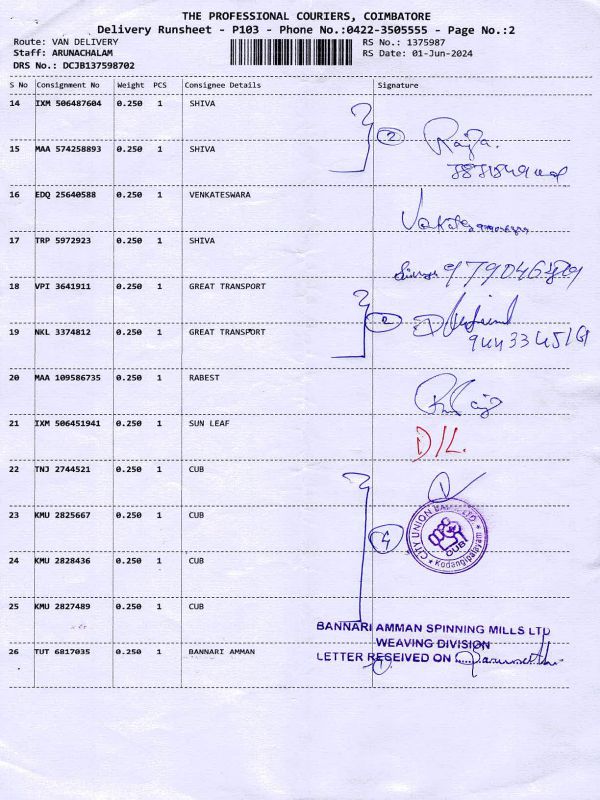 THE PROFESSIONAL COURIERS, COIMBATORE
Delivery Runsheet - P103 - Phone No.:0422-3505555 - Page No.:2
Route: VAN DELIVERY RS No.: 1375987
Staff: ARUNACHALAM RS Date: 01-Jun-2024
DRS No.: DCJB137598702
S No Consignment No Weight PCS Consignee Details Signature
14 IXM 506487604 0.250 1 SHIVA
2
15 MAA 574258893 0.250 1 SHIVA
16 EDQ 25640588 0.250 1 VENKATESWARA
17 TRP 5972923 0.250 1 SHIVA
18 VPI 3641911 0.250 1 GREAT TRANSPORT
2
19 NKL 3374812 0.250 1 GREAT TRANSPORT
20 MAA 109586735 0.250 1 RABEST
21 IXM 506451941 0.250 1 SUN LEAF
D/L.
22 TNJ 2744521 0.250 1 CUB
23 KMU 2825667 0.250 1 CUB
4
CITY UNION BANK LTD
CUB
Kodangipalayam
24 KMU 2828436 0.250 1 CUB
25 KMU 2827489 0.250 1 CUB
BANNARI AMMAN SPINNING MILLS LTD
WEAVING DIVISION
26 TUT 6817035 0.250 1 BANNARI AMMAN
LETTER RESEIVED ON
1